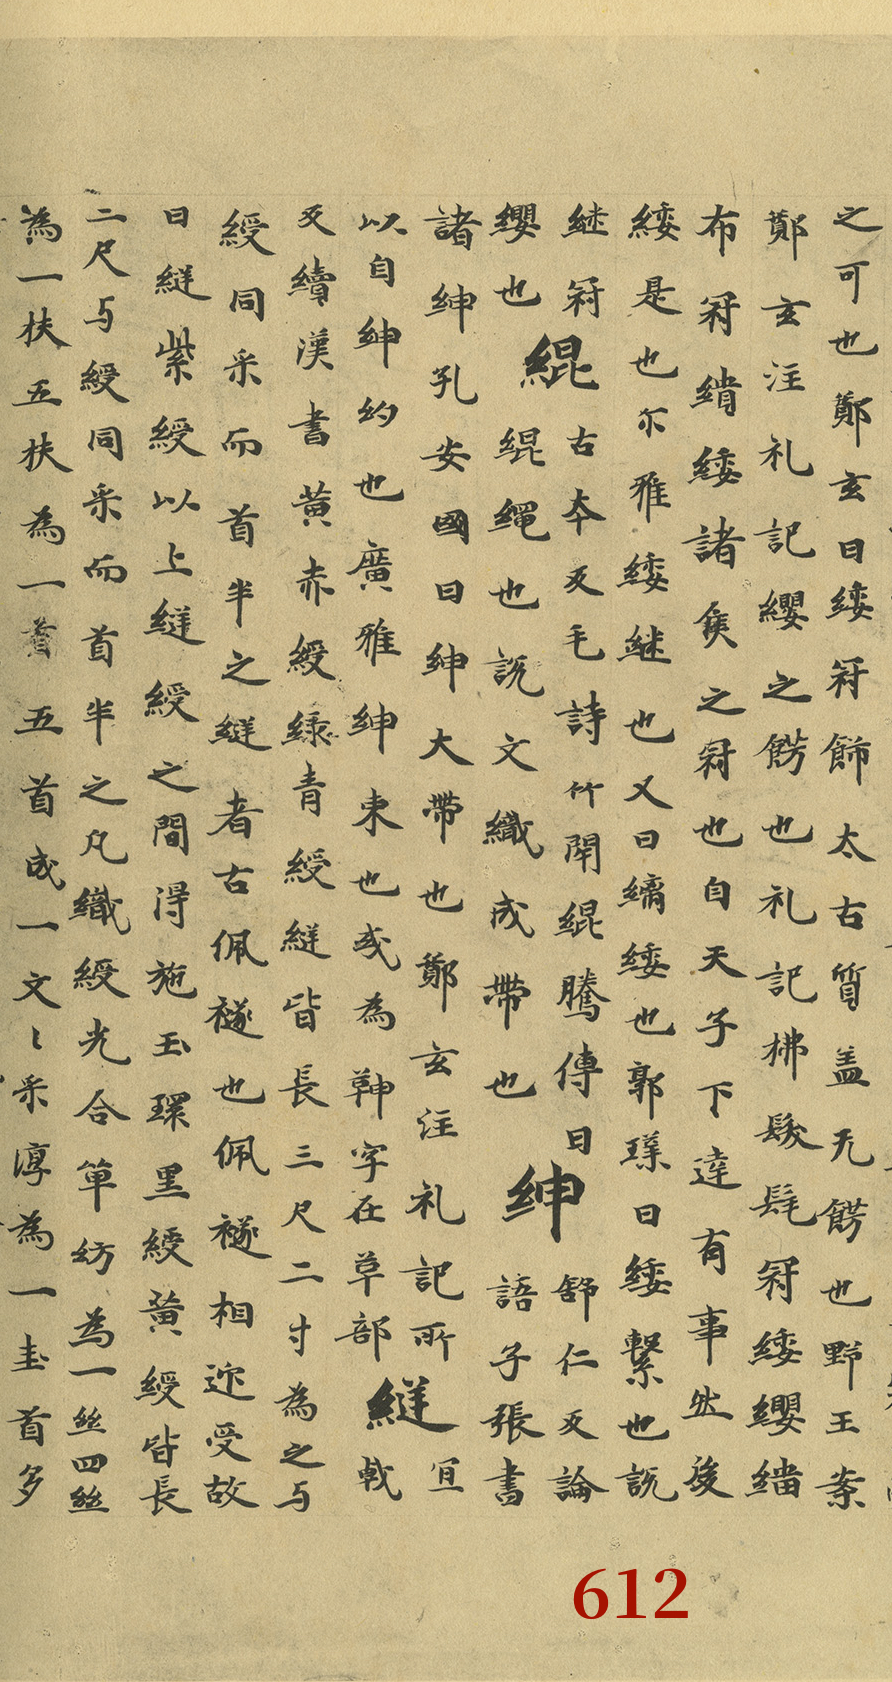 之可也鄭玄曰緌冠飾太古質盖无餝也野王案
鄭玄注礼記纓之餝也礼記拂髮髦冠緌纓緇
布冠繢緌諸侯之冠也自天子下達有事然後
緌是也尒雅緌継也又曰縭緌也郭璞曰緌繋也説
継冠
纓也
緄
古夲反毛詩竹閇緄騰傳曰
緄繩也説文織成帶也
紳
舒仁反論
語子張書
諸紳孔安國曰紳大帶也鄭玄注礼記所
以自紳約也廣雅紳束也或為䩼字在革部
縌
宜
戟
反續漢書黄赤綬緑青綬縌皆長三尺二寸為之与
綬同采而首半之縌者古佩襚也佩襚相迎受故
曰縌紫綬以上縌綬之間得施玉環黒綬黄綬皆長
二尺与綬同采而首半之凡織綬先合單紡為一絲四絲
為一扶五扶為一首五首成一文〻采淳為一圭首多
612